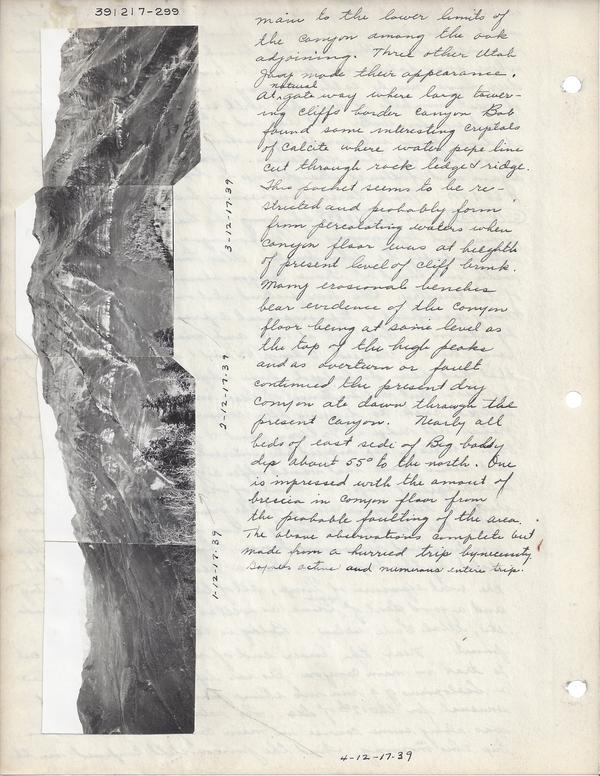 391217-299
main to the lower limits of
the canyon among the oak
adjoining. Three other Utah
Jays made their appearance.
At natural gate way where large tower-
ing cliffs border canyon Bob
found some interesting crystals
of calcite where water pipe line
cut through rock ledge & ridge.
This pocket seems to be re-
stricted and probably form
from percolating waters when
canyon floor was at heights
of present level of cliff brink.
Many erosional benches
bear evidence of the canyon
floor being at some level as
the top of the high peaks
and as overturn or fault
continued the present dry
canyon ate down through the
present canyon. Nearly all
beds of east side of Big baddy
dip about 55° to the north. One
is impressed with the amount of
breccia in canyon floor from
the probable faulting of the area.
The above observations complete but
made from a hurried trip by necessity
active and numerous entire trip.
3-12-17-39
2-12-17-39
1-12-17-39
4-12-17-39